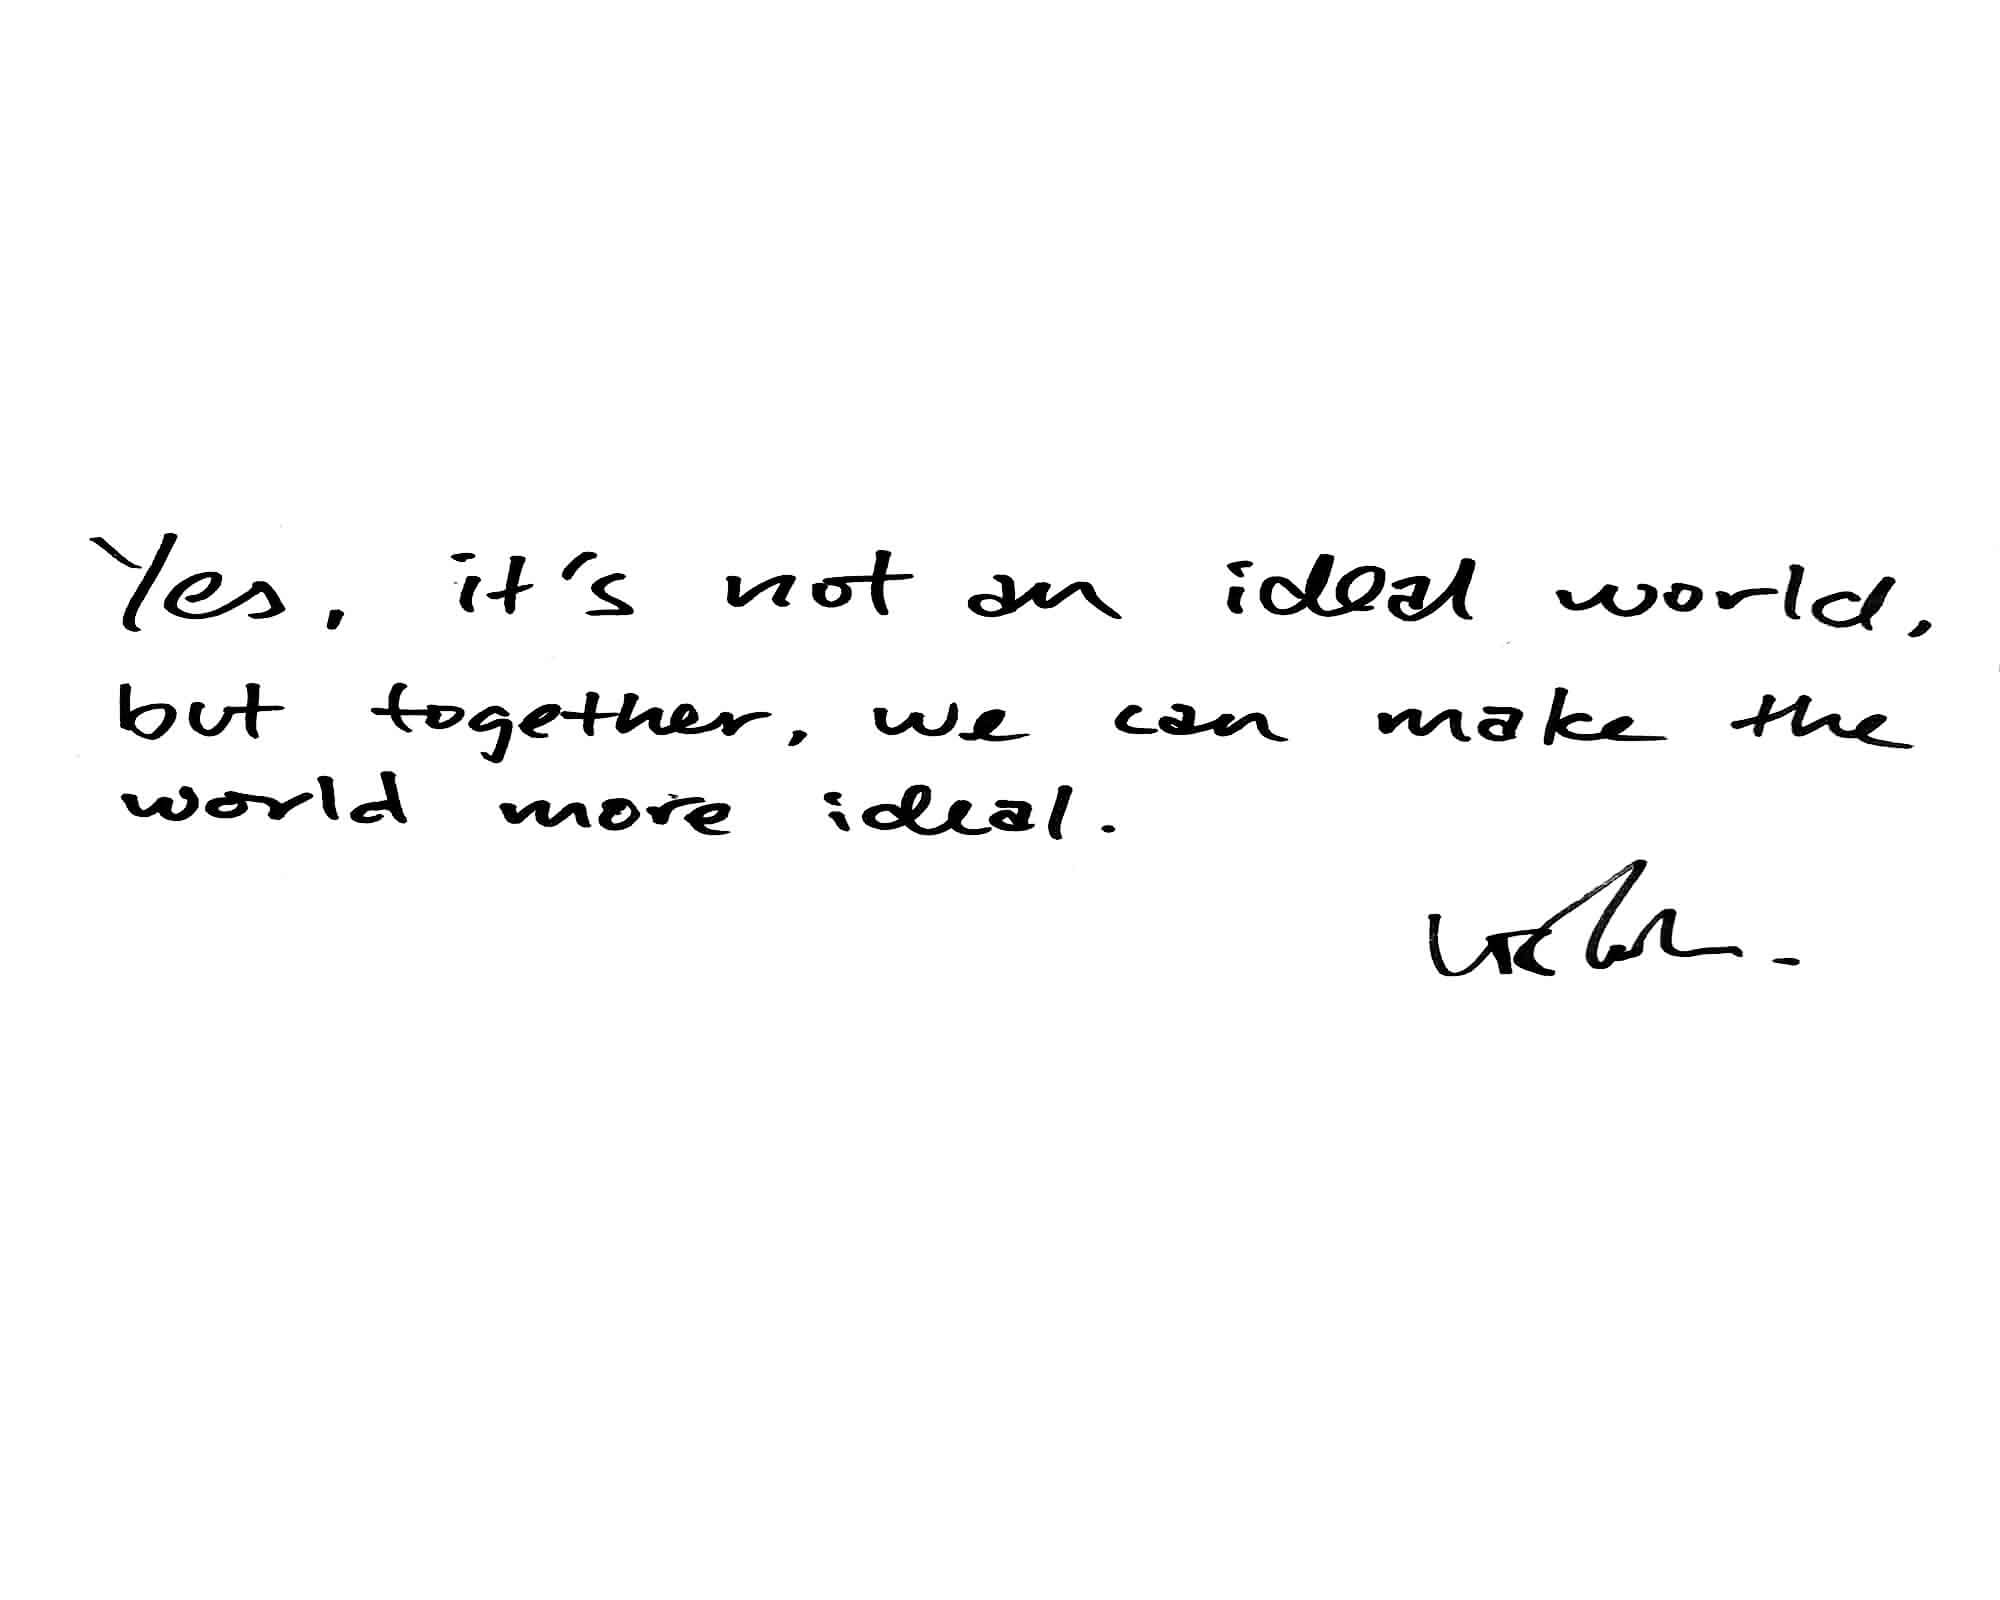 Yes, it's not an ideal world,
but together, we can make the
world more ideal.